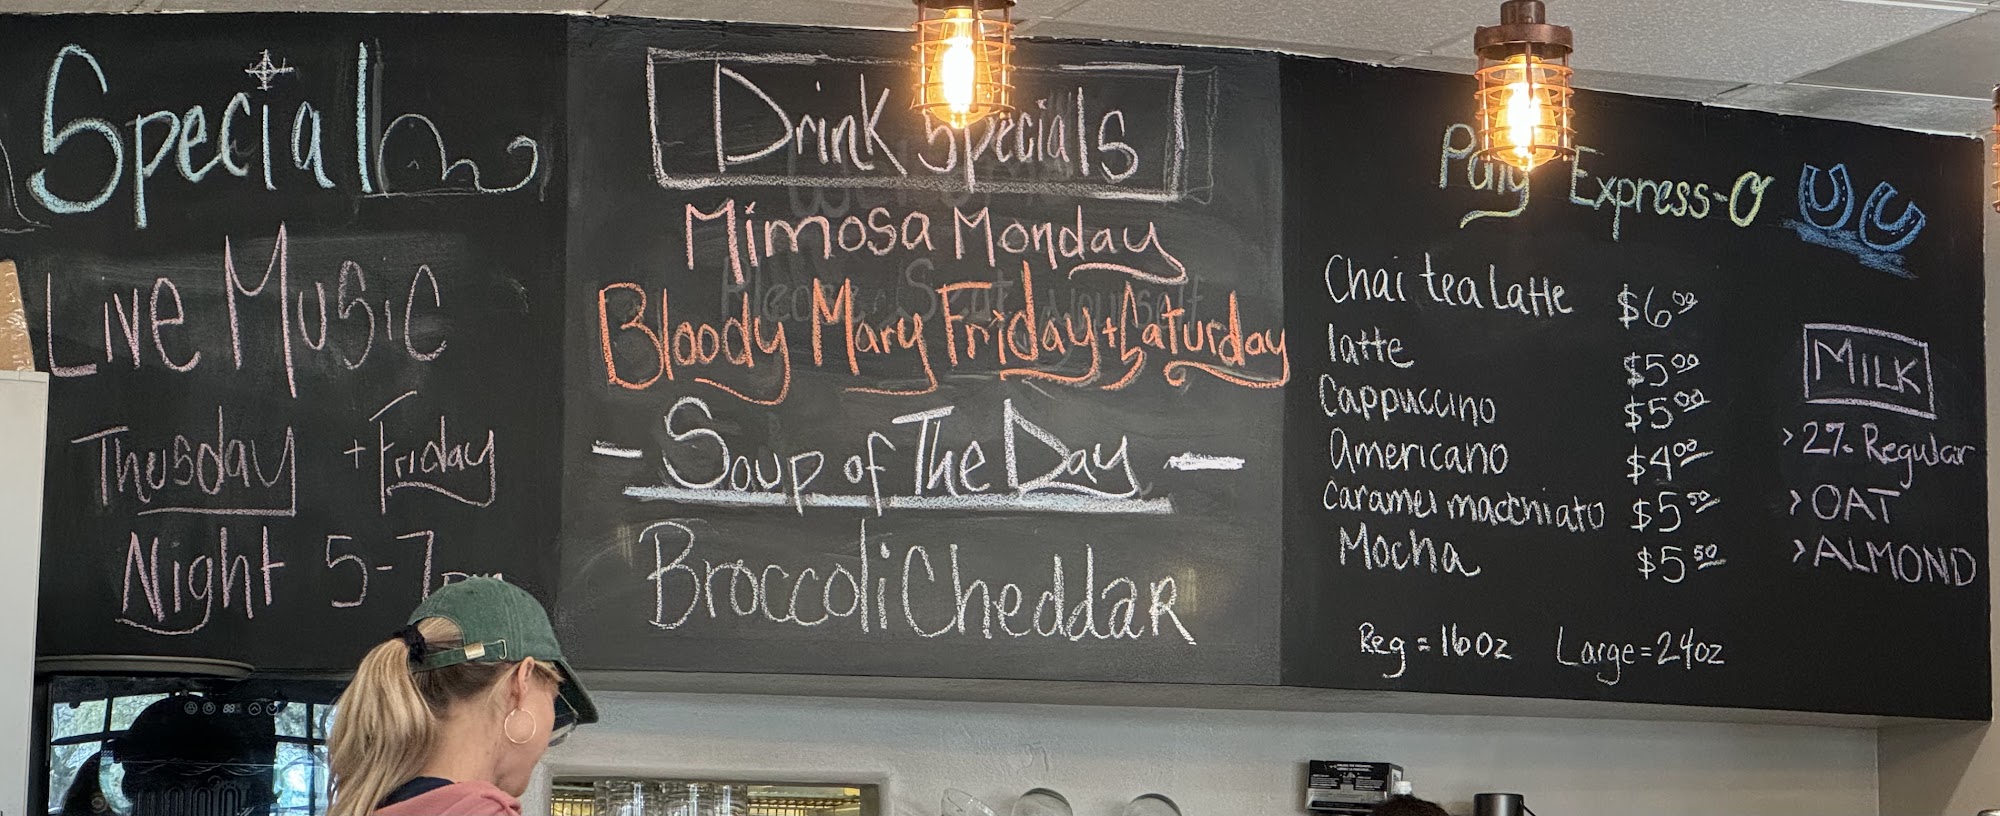 Special
Live Music
Thusday + Friday
Night 5-7pm
Drink Specials
Mimosa Monday
Bloody Mary Friday + Saturday
- Soup of The Day -
Broccoli Cheddar
Pony Express-O
Chai tea Latte $6.00
latte $5.00
Cappuccino $5.00
Americano $4.00
Caramel macchiato $5.50
Mocha $5.50
Reg = 16oz Large = 24oz
MILK
> 2% Regular
> OAT
> ALMOND